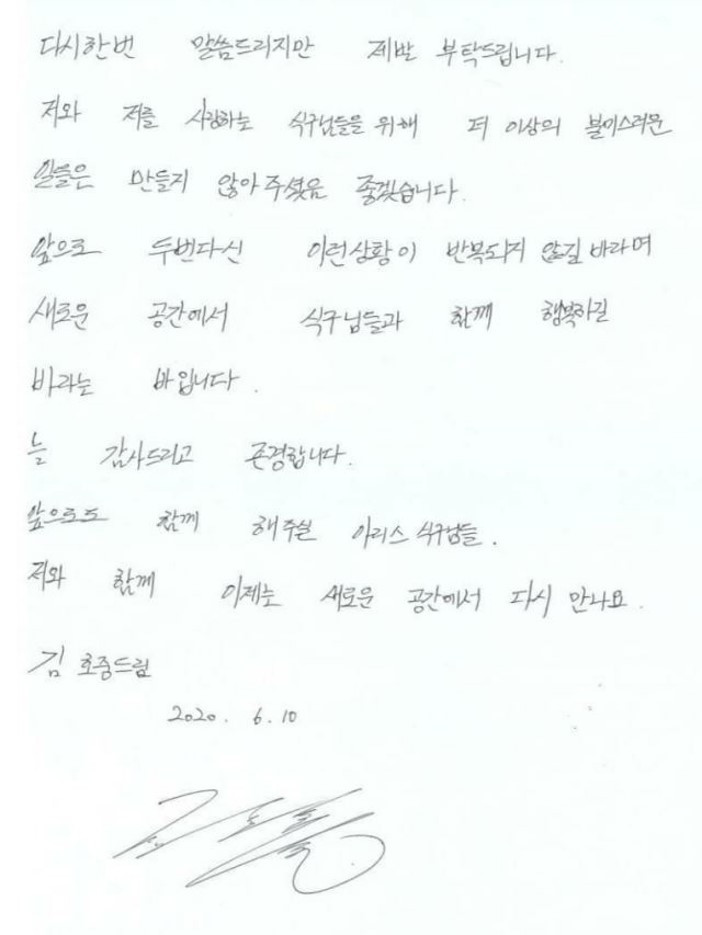 다시한번 말씀드리지만 제발 부탁드립니다.
저와 저를 사랑하는 식구님들을 위해 더 이상의 불미스러운
일들은 만들지 않아 주셨음 좋겠습니다.
앞으로 두번다신 이런상황이 반복되지 않길 바라며
새로운 공간에서 식구님들과 함께 행복하길
바라는 바입니다.
늘 감사드리고 존경합니다.
앞으로도 함께 해주실 아리스 식구님들.
저와 함께 이제는 새로운 공간에서 다시 만나요.
김 호중드림
2020. 6. 10